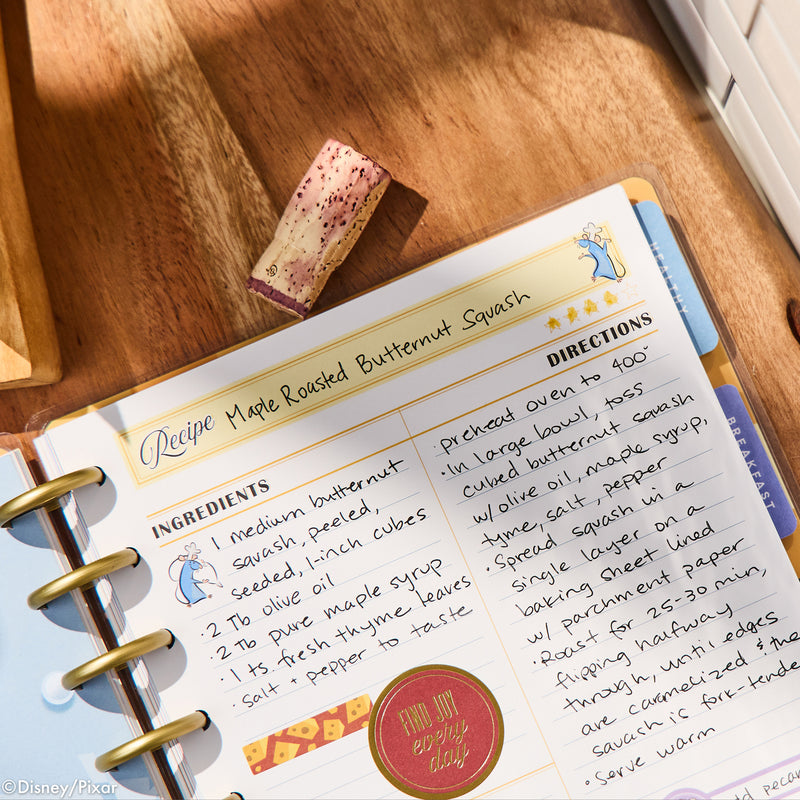 Recipe Maple Roasted Butternut Squash
INGREDIENTS
1 medium butternut
squash, peeled,
seeded, 1-inch cubes
· 2 Tb olive oil
· 2 Tb pure maple syrup
· 1 ts fresh thyme leaves
· salt + pepper to taste
FIND JOY
every
day
DIRECTIONS
preheat oven to 400°
· In large bowl, toss
cubed butternut squash
w/ olive oil, maple syrup,
tyme, salt, pepper
· Spread squash in a
single layer on a
baking sheet lined
w/ parchment paper
· Roast for 25-30 min,
flipping halfway
through, until edges
are caramelized & the
squash is fork-tende
· Serve warm
HEALTHY
BREAKFAST
©Disney/Pixar